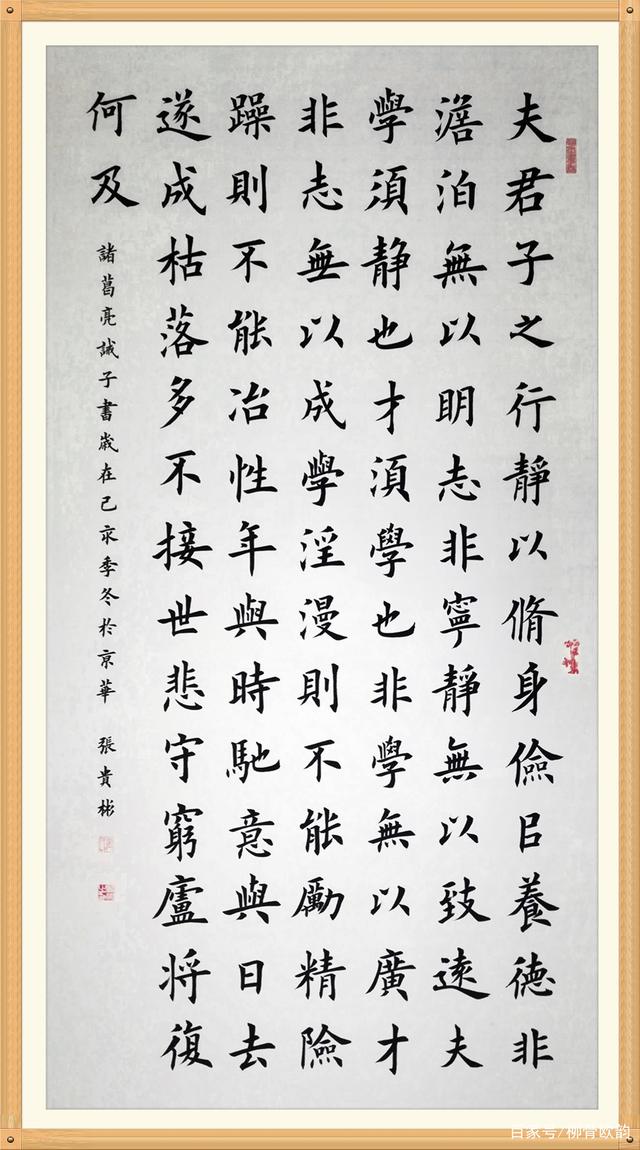 夫君子之行靜以脩身儉㠯養德非
澹泊無以明志非寧靜無以致遠夫
學須静也才須學也非學無以廣才
非志無以成學淫漫則不能勵精險
躁則不能冶性年與時馳意與日去
遂成枯落多不接世悲守窮廬將復
何及
諸葛亮誡子書歲在己亥季冬於京華 張貴彬
百家号/柳骨欧韵